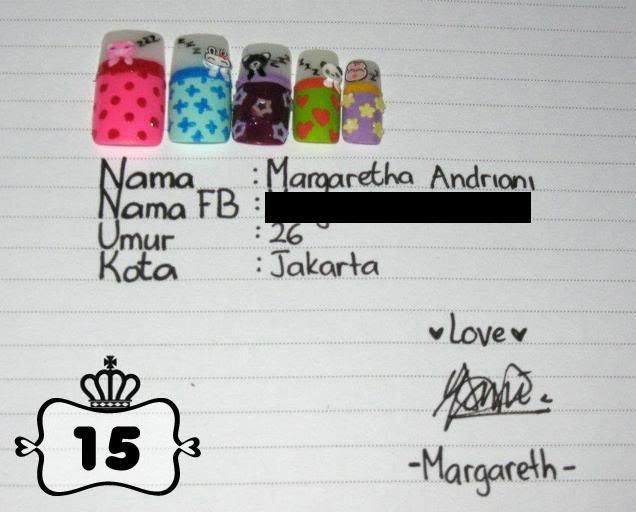 zzz zzz zzz zzz z
Nama : Margaretha Andriani
Nama FB :
Umur : 26
Kota : Jakarta
♥Love♥
-Margareth-
15